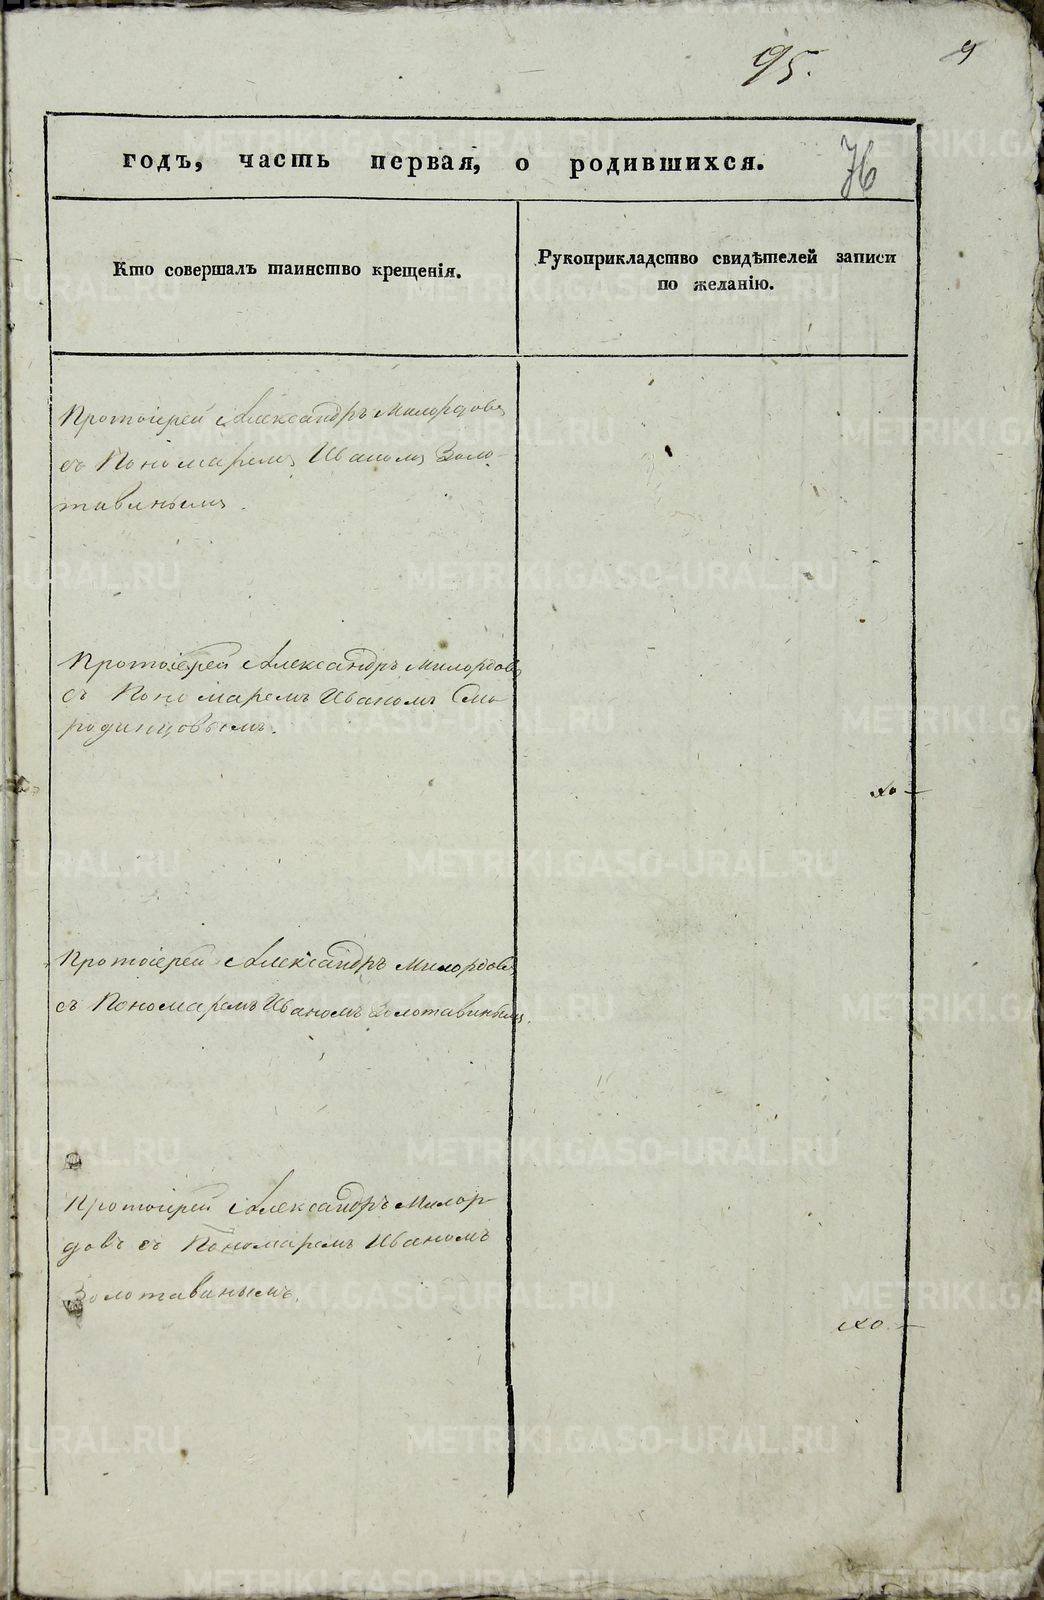 95.
9
годъ, часть первая, о родившихся.
76
Кто совершалъ таинство крещенія.
Рукоприкладство свидѣтелей записи
по желанію.
Протоіерей Александръ Милордовъ
съ Пономаремъ Иваномъ Золо-
тавинымъ.
Протоіерей Александръ Милордовъ
съ Пономаремъ Иваномъ Смо-
родинцовымъ.
Протоіерей Александръ Милордовъ
съ Пономаремъ Иваномъ Золотавинымъ.
Протоіерей Александръ Милор-
довъ съ Пономаремъ Иваномъ
Золотавинымъ.
METRIKI.GASO-URAL.RU